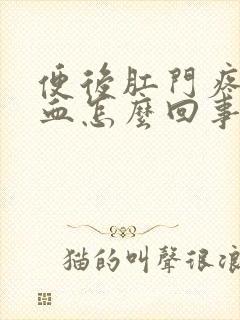 便後肛門疼
血怎麼回事
猫的叫聲很浪